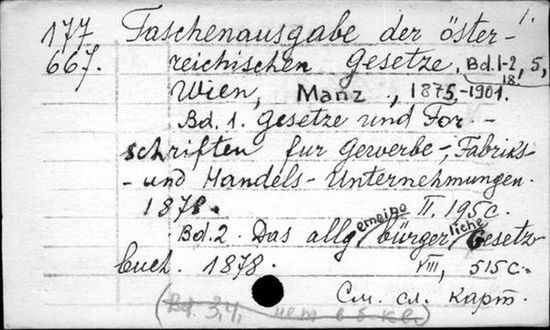 177 Taschenausgabe der öster- 1.
667. reichischen Gesetze. Bd. 1-2, 5,
18.
Wien, Manz, 1875-1901.
Bd. 1. Gesetze und For-
schriften für Gewerbe-, Fabriks-
- und Handels-Unternehmungen.
1878. II, 195 c.
Bd. 2. Das allgemeine bürgerliche Gesetz
buch. 1878. VIII, 515 c.
См. сл. карт.
(Bd. 3, 4, нет в б-кв.)